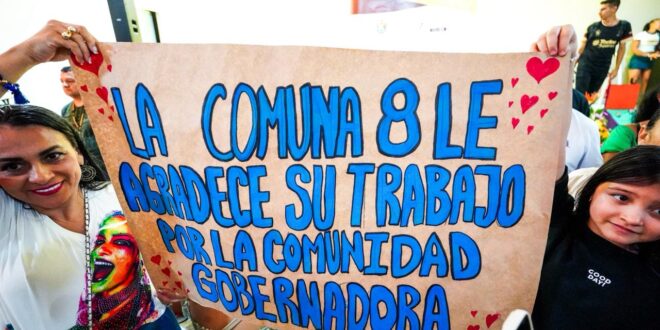 LA COMUNA 8 LE
AGRADECE SU TRABAJO
POR LA COMUNIDAD
GOBERNADORA
COOD
DAY!